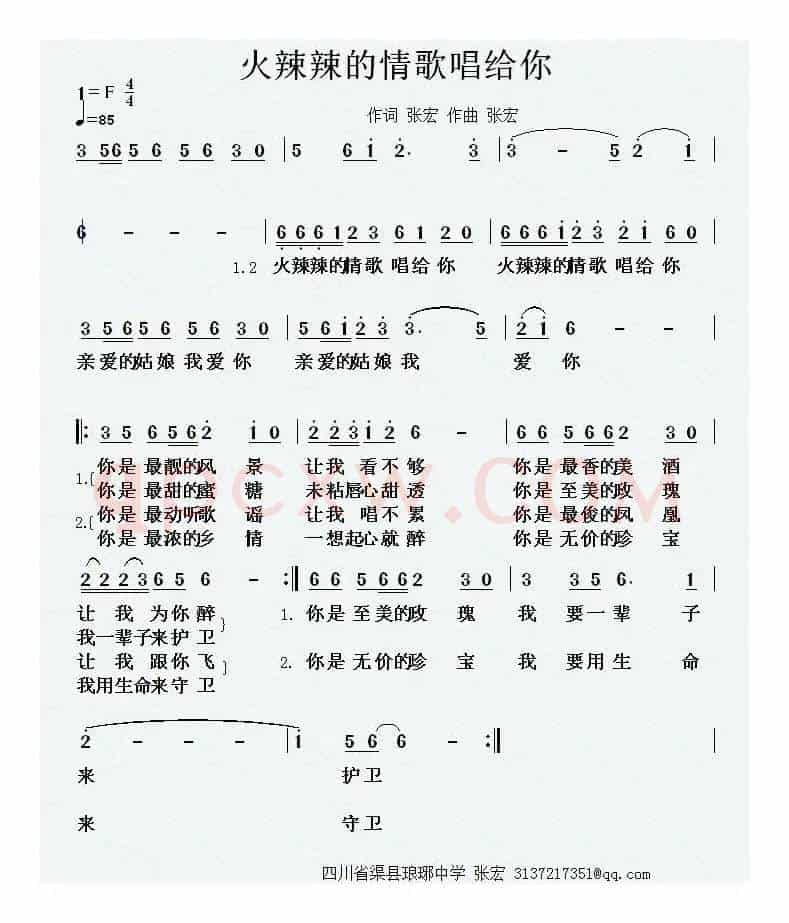 火辣辣的情歌唱给你
1=F 4/4
♩=85
作词 张宏 作曲 张宏
3 56 5 6 5 6 3 0 | 5 6 1 2. 3 | 3 - 5 2 1 |
6 - - - | 6 6 6 1 2 3 6 1 2 0 | 6 6 6 1 2 3 2 1 6 0 |
1.2 火辣辣的情歌 唱给 你 火辣辣的情歌 唱给 你
3 5 6 5 6 5 6 3 0 | 5 6 1 2 3 3. 5 | 2 1 6 - - |
亲爱的姑娘 我爱 你 亲爱的姑娘 我 爱 你
‖: 3 5 6 5 6 2 1 0 | 2 2 3 1 2 6 - | 6 6 5 6 6 2 3 0 |
1.{ 你是 最靓的风 景 让我 看不够 你是 最香的美 酒
你是 最甜的蜜 糖 未粘唇心甜透 你是 至美的玫 瑰
2.{ 你是 最动听歌 谣 让我 唱不累 你是 最俊的凤 凰
你是 最浓的乡 情 一想起心就醉 你是 无价的珍 宝
qpcxw.com
2 2 2 3 6 5 6 - :‖ 6 6 5 6 6 2 3 0 | 3 3 5 6. 1 |
让 我 为你醉 } 1. 你是 至美的玫 瑰 我 要一辈 子
我一辈子来护卫
让 我 跟你飞 } 2. 你是 无价的珍 宝 我 要用生 命
我用生命来守卫
2 - - - | 1 5 6 6 - :‖ |
来 护卫
来 守卫
四川省渠县琅琊中学 张宏 3137217351@qq.com